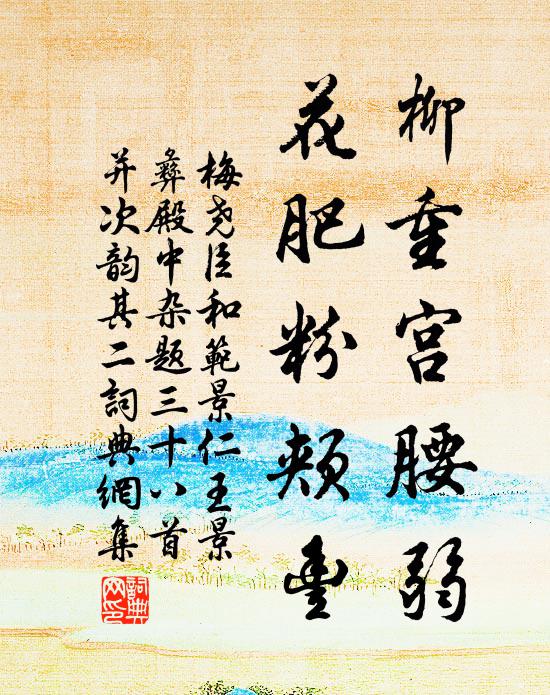 柳重宫腰弱
花肥粉頰豐
梅尧臣和範景仁王景
彝殿中杂題三十八首
并次韵其二詞典網集
詞典网印